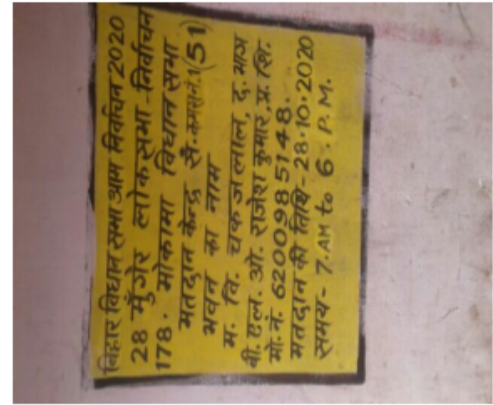 बिहार विधान सभा आम निर्वाचन 2020
28 मुँगेर लोकसभा-निर्वाचन
178. मोकामा विधान सभा
मतदान केन्द्र सं. कमरा नं.1(51)
भवन का नाम
म. वि. चकजलाल, द. भाग
बी. एल. ओ. राजेश कुमार, प्र. शि.
मो. नं. 6200985148.
मतदान की तिथि-28.10.2020
समय- 7.AM to 6.P.M.